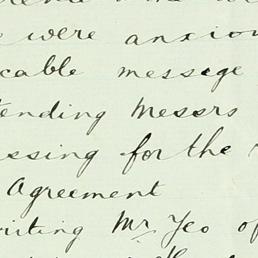 were anxiou
cable message
tending Messrs
essing for the
Agreement
writing Mr. Yeo of